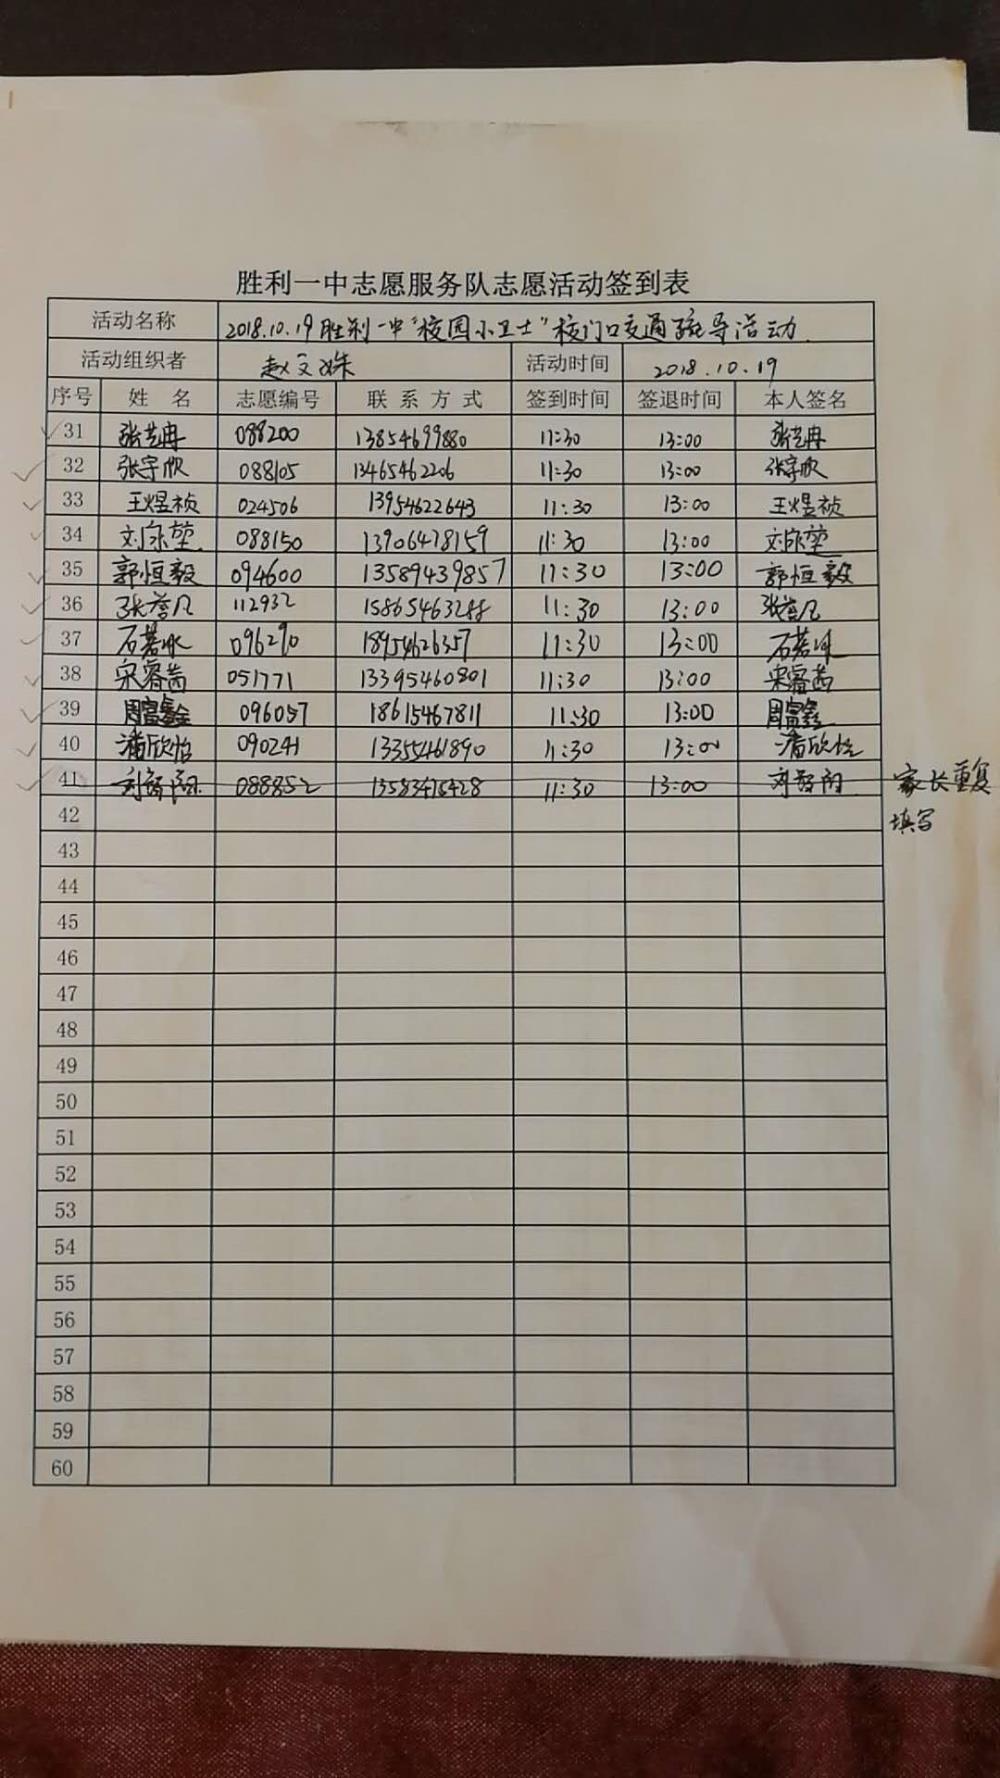 胜利一中志愿服务队志愿活动签到表
活动名称 2018.10.19胜利一中“校园小卫士”校门口交通疏导活动
活动组织者 赵文姝 活动时间 2018.10.19
序号 姓名 志愿编号 联系方式 签到时间 签退时间 本人签名
31 张艺冉 088200 13854699880 11:30 13:00 张艺冉
32 张宇欣 088105 13465462206 11:30 13:00 张宇欣
33 王煜祯 024506 13954622643 11:30 13:00 王煜祯
34 刘家堃 088150 13906478159 11:30 13:00 刘家堃
35 郭恒毅 094600 13589439857 11:30 13:00 郭恒毅
36 张誉凡 112932 15865463288 11:30 13:00 张誉凡
37 石若冰 096290 18954626357 11:30 13:00 石若冰
38 宋睿茜 051771 13395460801 11:30 13:00 宋睿茜
39 周富鑫 096057 18615467811 11:30 13:00 周富鑫
40 潘欣怡 090241 13355461890 11:30 13:00 潘欣怡
41 刘智阳 088852 13583415428 11:30 13:00 刘智阳 家长重复
填写
42
43
44
45
46
47
48
49
50
51
52
53
54
55
56
57
58
59
60